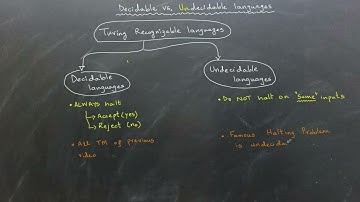 Decidable vs. Undecidable languages
Turing Recognizable languages
Decidable
languages
Undecidable
languages
• ALWAYS halt
→ Accept (yes)
→ Reject (no)
• All TM of previous
video
• Do NOT halt on "Some" inputs
• Famous Halting Problem
is undecida